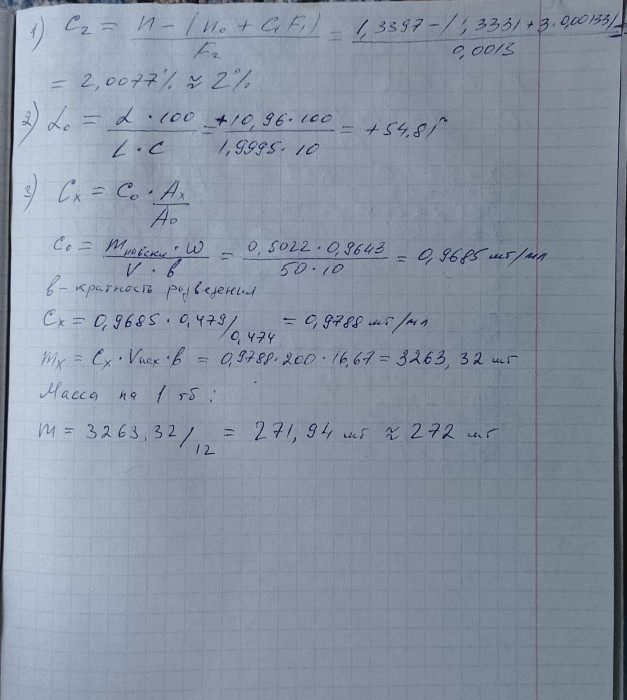 1) C₂ = n - (n₀ + C₁F₁) / F₂ = 1,3397 - (1,3331 + 3·0,00133) / 0,0013 =
= 2,0077% ≈ 2%
2) α₀ = α · 100 / L · C = +10,96 · 100 / 1,9995 · 10 = +54,81°
3) Cx = C₀ · Ax / A₀
C₀ = mнавески · ω / V · в = 0,5022 · 0,9643 / 50 · 10 = 0,9685 мг/мл
в - кратность разведения
Cx = 0,9685 · 0,479 / 0,474 = 0,9788 мг/мл
mx = Cx · Vисх · в = 0,9788 · 200 · 16,67 = 3263,32 мг
Масса на 1 тб:
m = 3263,32 / 12 = 271,94 мг ≈ 272 мг